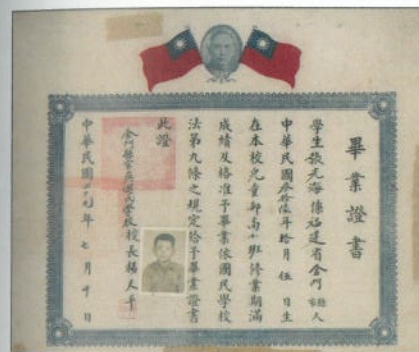 畢業證書
學生張元海係福建省金門縣人
中華民國叁拾伍年拾月伍日生
在本校兒童部高小班修業期滿
成績及格准予畢業依國民學校
法第九條之規定給予畢業證書
此證
校長楊人平
中華民國年七月十日